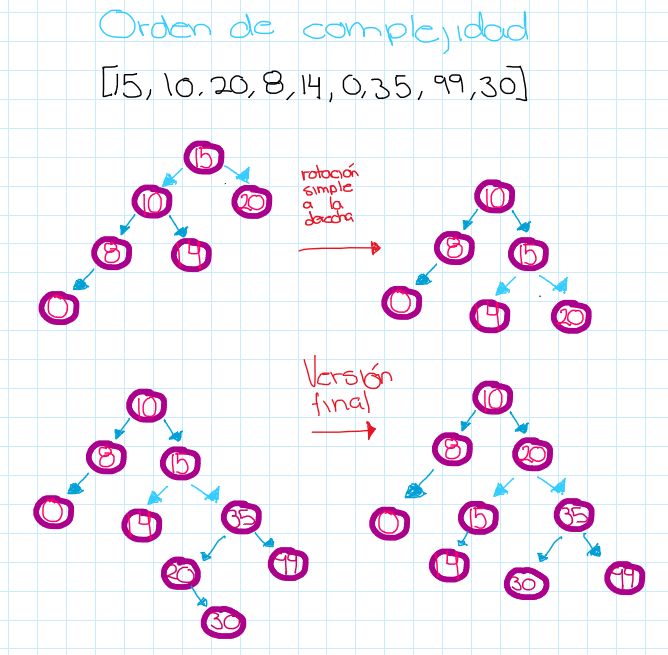 Orden de complejidad
[15, 10, 20, 8, 14, 0, 35, 99, 30]
15
10
20
8
14
0
rotación
simple
a la
derecha
10
8
15
0
14
20
10
8
15
0
14
35
20
99
30
Versión
final
10
8
20
0
15
35
14
30
99